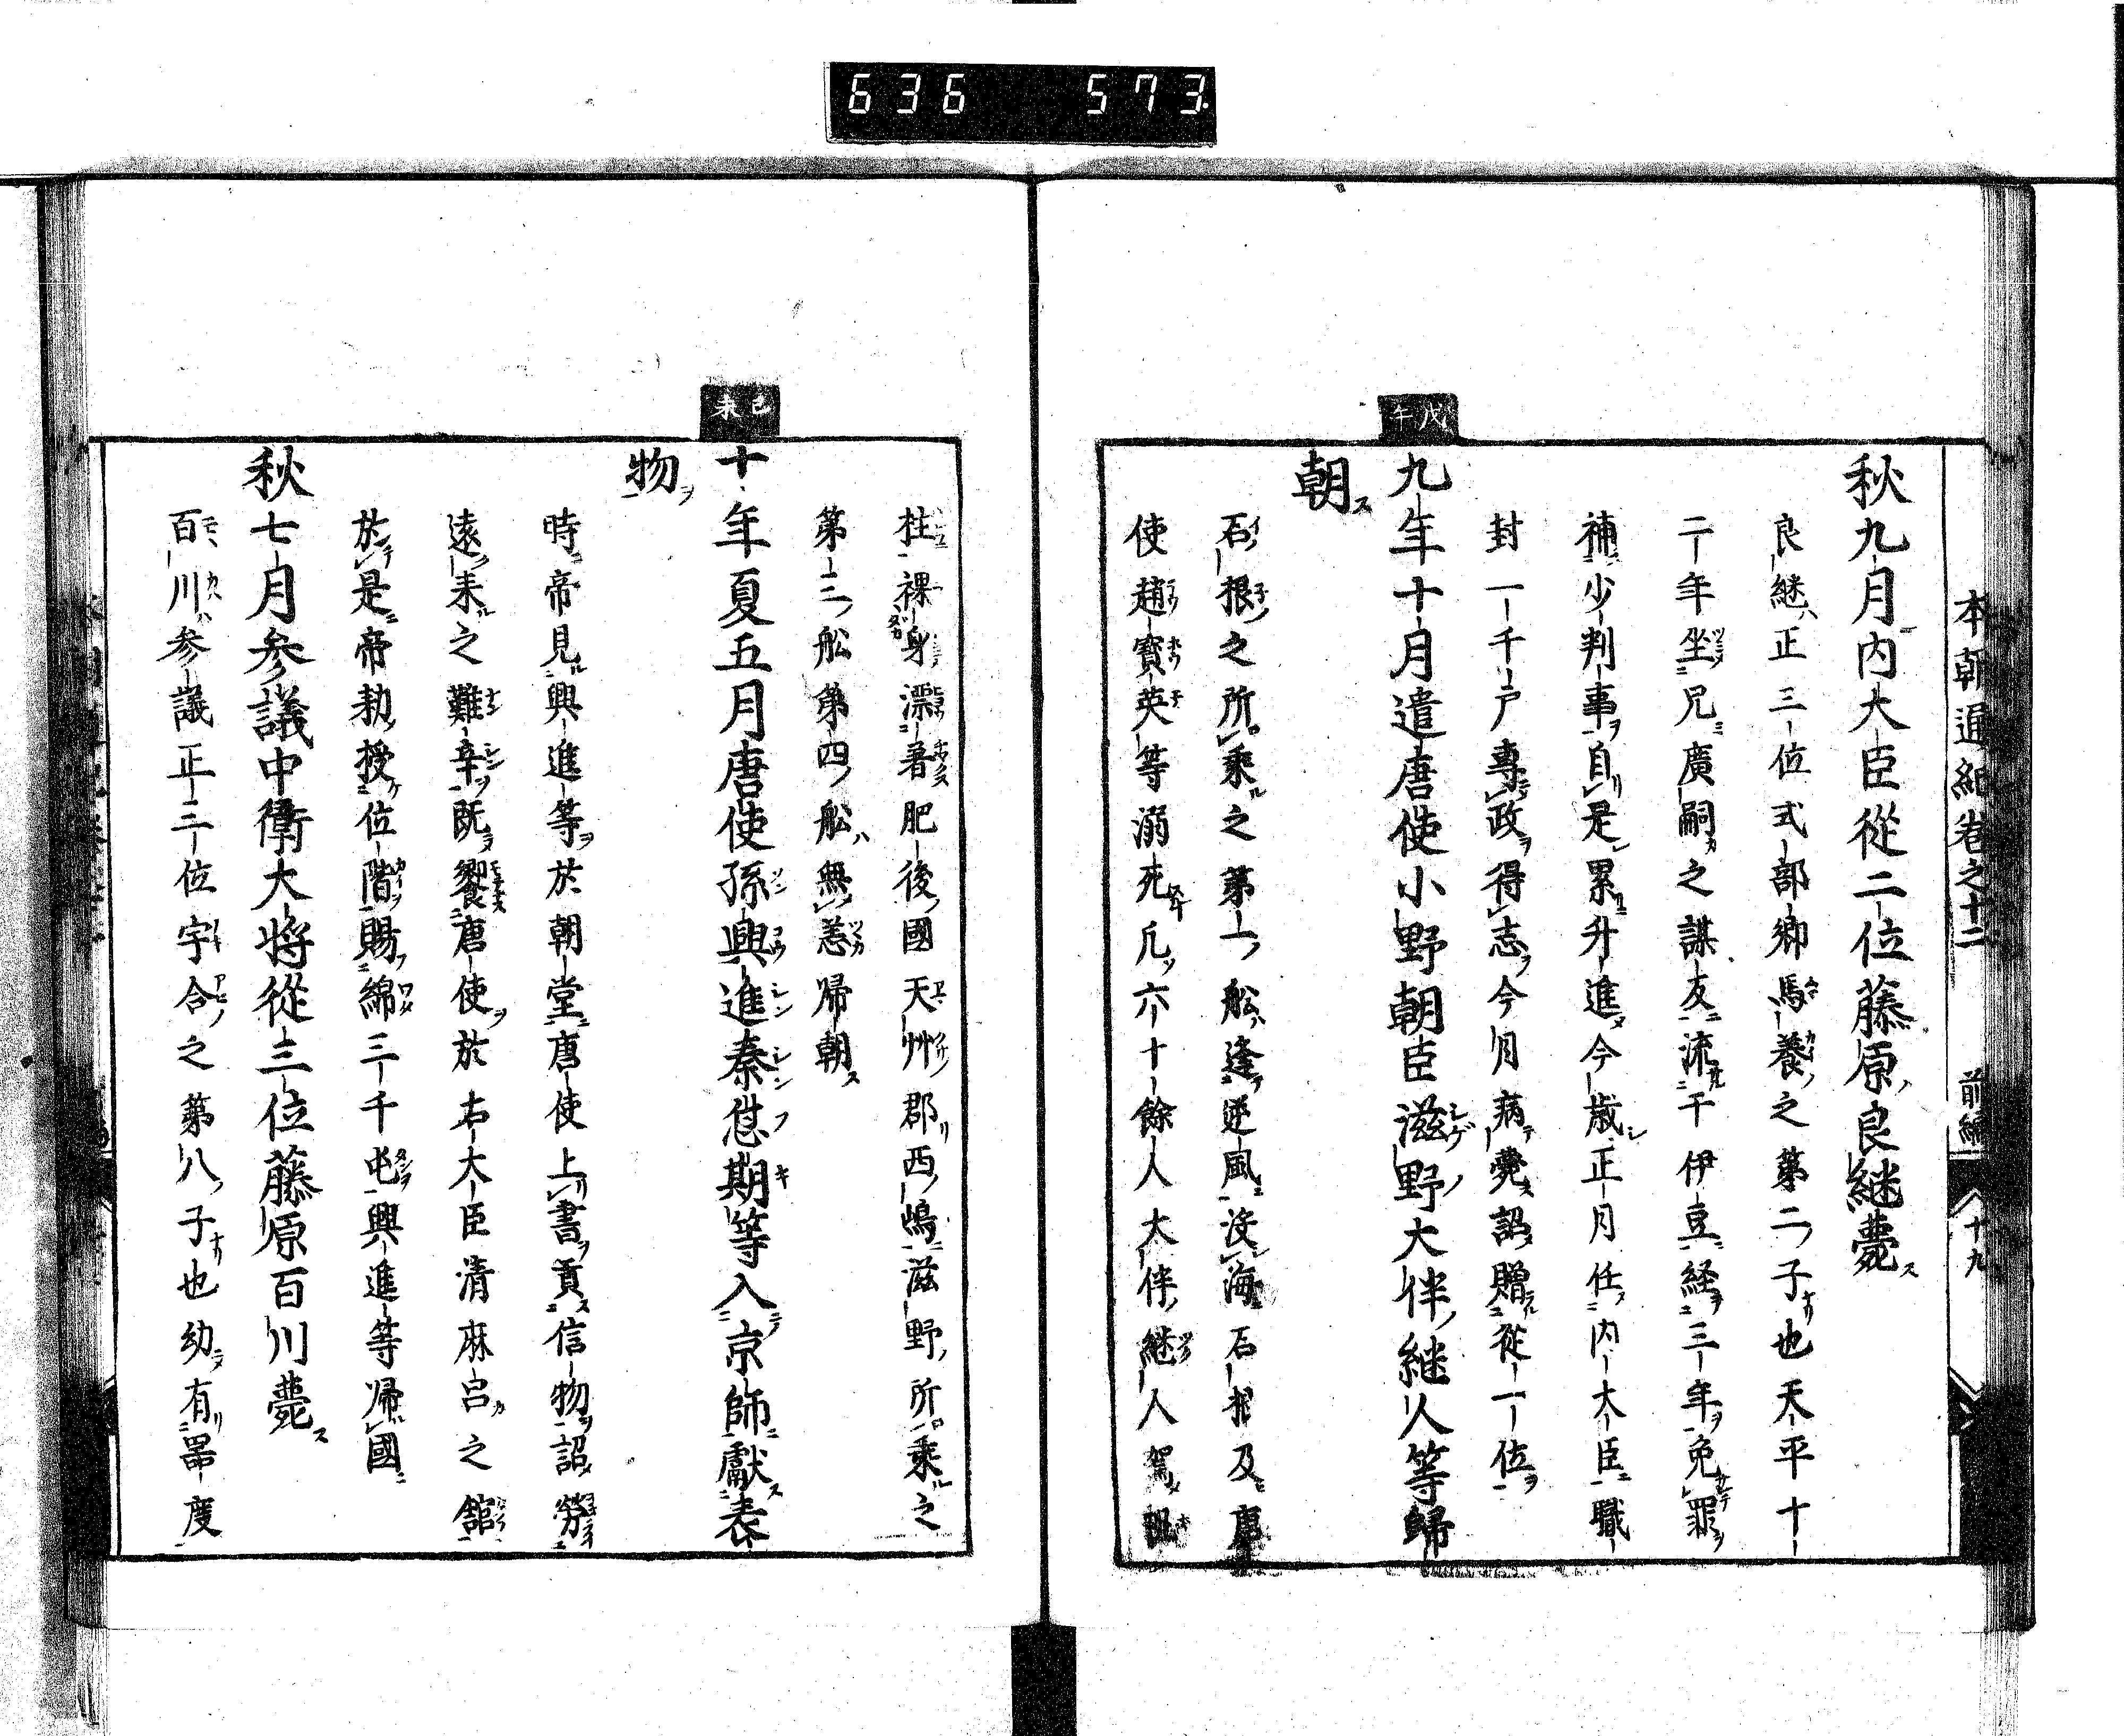 636 573.
本朝通紀巻之十二 前編 十九
秋九月内大臣從二位藤原良継薨
良継正三位式部卿馬養之第二子也天平十
二年坐兄廣嗣之謀友流于伊豆経三年免罪
補少判事自是累升進今歳正月任内大臣職
封一千戸專政得志今月病薨詔贈從一位
戊午
九年十月遣唐使小野朝臣滋野大伴継人等歸
朝
石根之所乘之第一船逢逆風没海石根及唐
使趙寳英等溺死凡六十餘人大伴継人駕
柱裸身漂著肥後國天艸郡西嶋滋野所乘之
第三船第四船無恙帰朝
己未
十年夏五月唐使孫興進秦愆期等入京師獻表
物
時帝見興進等於朝堂唐使上書貢信物詔勞
遠来之難辛既饗唐使於右大臣清麻呂之舘
於是帝勅授位階賜綿三千屯興進等帰國
秋七月参議中衛大将從三位藤原百川薨
百川参議正三位宇合之第八子也幼有噐度